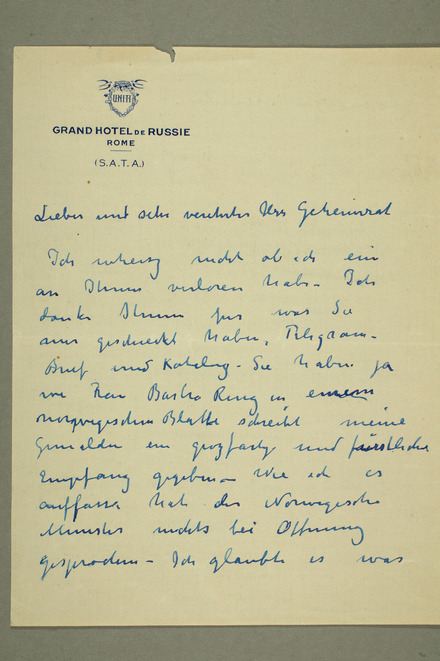 UNITI
GRAND HOTEL DE RUSSIE
ROME
(S.A.T.A.)
Lieber und sehr verehrter Herr Geheimrat
Ich nicht ob ich ein
an Ihnen verloren habe. Ich
danke Ihnen für was Sie
mir geschickt haben, Telegram-
Brief und Katalog - Sie haben ja
wie Frau Barbra Ring in einem
norwegischen Blatte schreibt meine
Gemälden ein grozfartig und fürstliche
Empfang gegeben - Wie ich es
auffasse hat der Norwegische
Minister nichts bei Öffnung
gesprochen - Ich glaubte es was